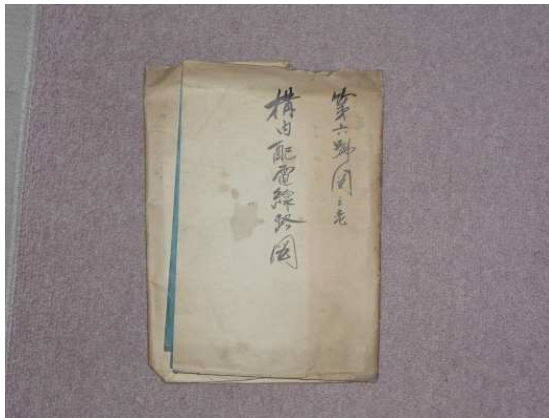 第六號図之壱
構内配電線路図